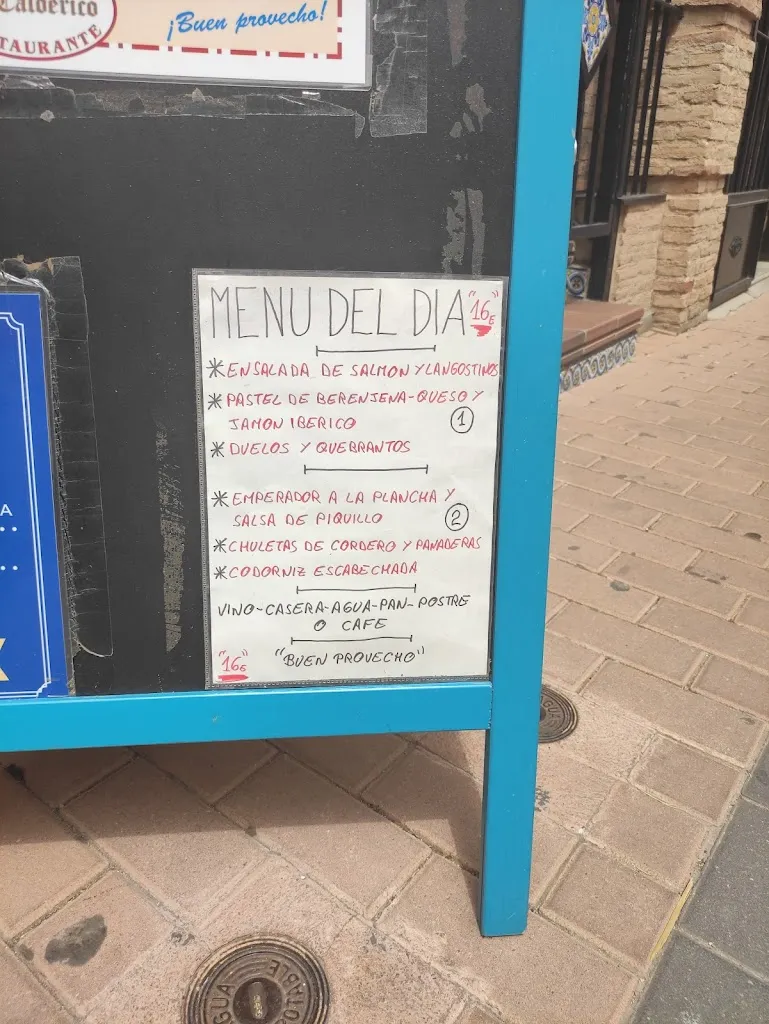 Calderico
¡Buen provecho!
TAURANTE
MENU DEL DIA "16€"
* ENSALADA DE SALMON Y LANGOSTINOS
* PASTEL DE BERENJENA-QUESO Y
JAMON IBERICO
1
* DUELOS Y QUEBRANTOS
* EMPERADOR A LA PLANCHA Y
SALSA DE PIQUILLO
2
* CHULETAS DE CORDERO Y PANADERAS
* CODORNIZ ESCABECHADA
VINO-CASERA-AGUA-PAN-POSTRE
O CAFE
"16€" "BUEN PROVECHO"
A
AGUA